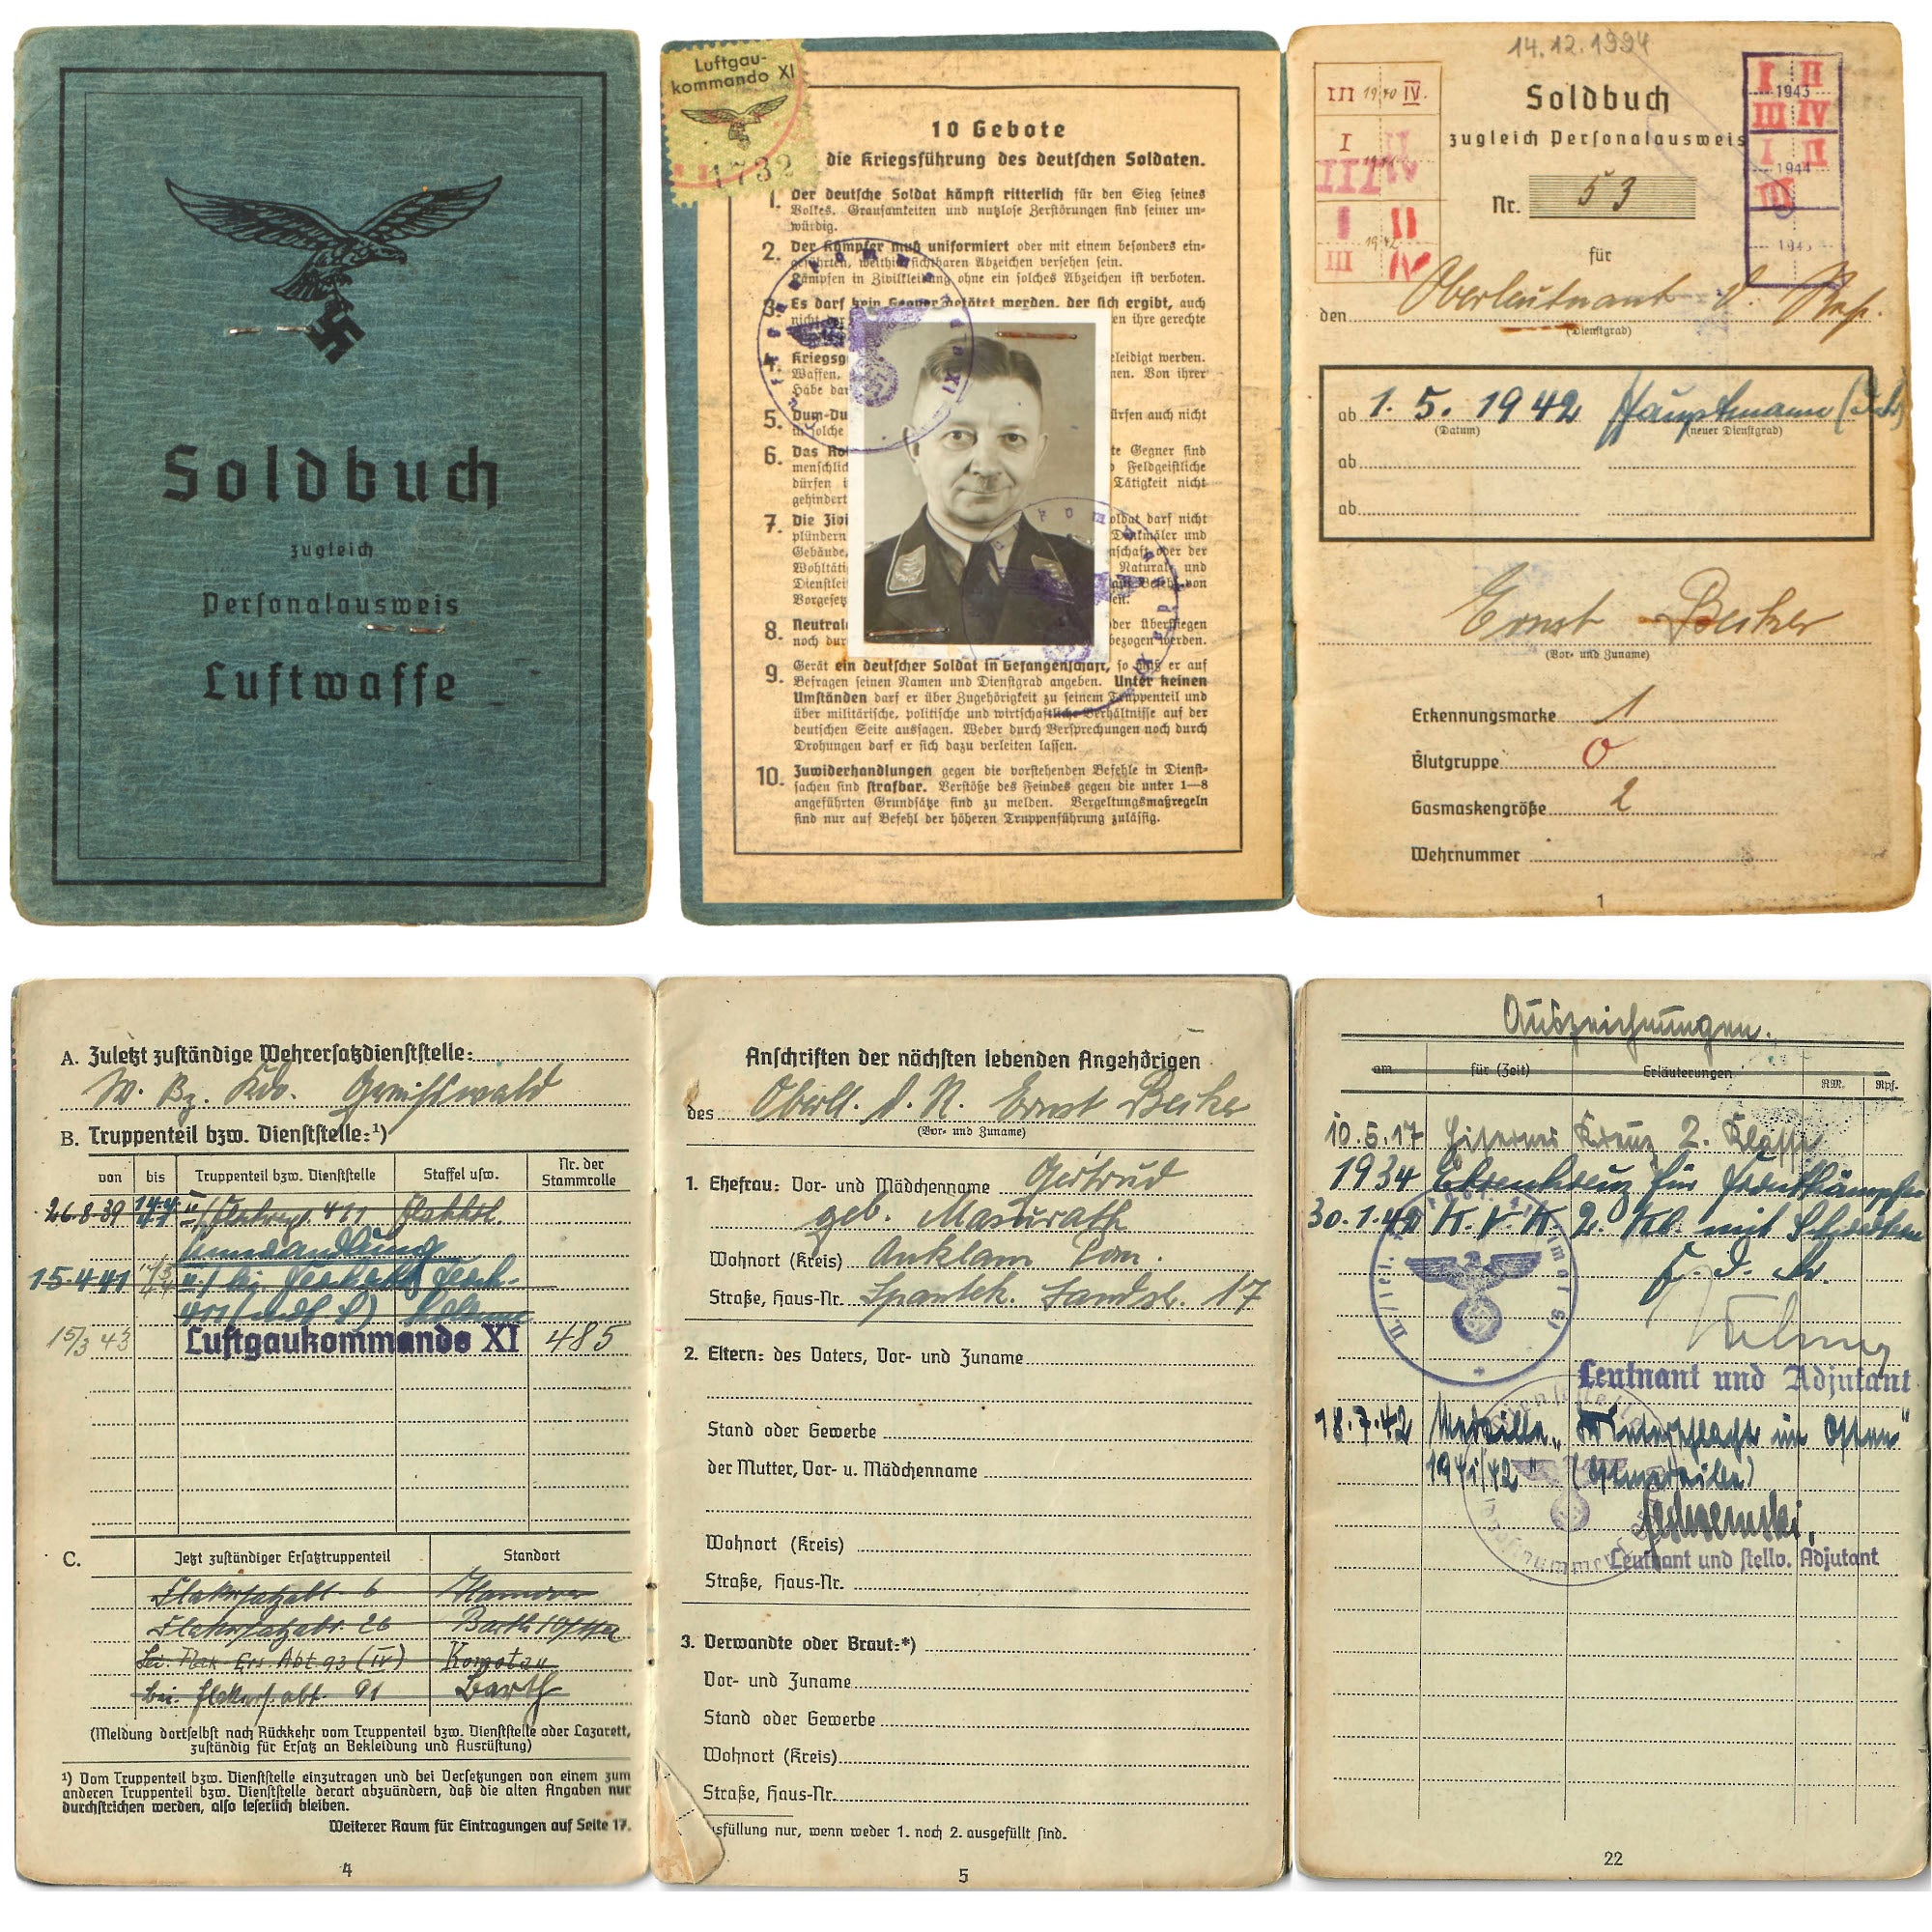 Soldbuch
zugleich
Personalausweis
Luftwaffe
Luftgau-
kommando XI
1732
10 Gebote
die Kriegsführung des deutschen Soldaten.
1. Der deutsche Soldat kämpft ritterlich für den Sieg seines
Volkes. Grausamkeiten und nutzlose Zerstörungen sind seiner un-
würdig.
2. Der Kämpfer muß uniformiert oder mit einem besonders ein-
geführten, weithin sichtbaren Abzeichen versehen sein.
Kämpfen in Zivilkleidung ohne ein solches Abzeichen ist verboten.
3. Es darf kein Gegner getötet werden, der sich ergibt, auch
nicht der
en ihre gerechte
eleidigt werden.
Waffen,
nen. Von ihrer
Habe dar
5. Dum-Du
ürfen auch nicht
in solche
6. Das Ro
te Gegner sind
menschlic
Feldgeistliche
dürfen i
Tätigkeit nicht
gehindert
7. Die Zivi
oldat darf nicht
plündern
Denkmäler und
Gebäude,
nschaft oder der
Wohltäti
Natural- und
Dienstlei
Befehl von
Vorgesetz
8. Neutral
der Überfliegen
noch dur
bezogen werden.
9. Gerät ein deutscher Soldat in Gefangenschaft, so muß er auf
Befragen seinen Namen und Dienstgrad angeben. Unter keinen
Umständen darf er über Zugehörigkeit zu seinem Truppenteil und
über militärische, politische und wirtschaftliche Verhältnisse auf der
deutschen Seite aussagen. Weder durch Versprechungen noch durch
Drohungen darf er sich dazu verleiten lassen.
10. Zuwiderhandlungen gegen die vorstehenden Befehle in Dienst-
sachen sind strafbar. Verstöße des Feindes gegen die unter 1—8
angeführten Grundsätze sind zu melden. Vergeltungsmaßregeln
sind nur auf Befehl der höheren Truppenführung zulässig.
14.12.1994
III 1940 IV.
I
1942
III IV
I II
1943
III IV
I II
1944
III
1945
Soldbuch
zugleich Personalausweis
Nr. 53
für
den Oberleutnant d. Res.
(Dienstgrad)
ab 1. 5. 1942 Hauptmann
(Datum) (neuer Dienstgrad)
ab
ab
Ernst Becker
(Vor- und Zuname)
Erkennungsmarke 1
Blutgruppe 0
Gasmaskengröße 2
Wehrnummer
1
A. Zuletzt zuständige Wehrersatzdienststelle:
W. Bz. Kdo. Greifswald
B. Truppenteil bzw. Dienststelle:¹)
von bis Truppenteil bzw. Dienststelle Staffel usw. Nr. der Stammrolle
26.8.39 II/Flakregt. 411
Umwandlung
15.4.41
15/3 43 Luftgaukommando XI 485
C. Jetzt zuständiger Ersatztruppenteil Standort
Flakersatzabt 6 Hannover
Flakersatzabt. 26 Barth
Flak Ers. Abt 93 (IV) Komotau
Flakers. abt. 91 Barth
(Meldung dortselbst nach Rückkehr vom Truppenteil bzw. Dienststelle oder Lazarett,
zuständig für Ersatz an Bekleidung und Ausrüstung)
¹) Vom Truppenteil bzw. Dienststelle einzutragen und bei Versetzungen von einem zum
anderen Truppenteil bzw. Dienststelle derart abzuändern, daß die alten Angaben nur
durchstrichen werden, also leserlich bleiben.
Weiterer Raum für Eintragungen auf Seite 17.
4
Anschriften der nächsten lebenden Angehörigen
des Oberlt. d. R. Ernst Becker
(Vor- und Zuname)
1. Ehefrau: Vor- und Mädchenname Gertrud
geb.
Wohnort (Kreis) Anklam Pom.
Straße, Haus-Nr. 17
2. Eltern: des Vaters, Vor- und Zuname
Stand oder Gewerbe
der Mutter, Vor- u. Mädchenname
Wohnort (Kreis)
Straße, Haus-Nr.
3. Verwandte oder Braut:*)
Vor- und Zuname
Stand oder Gewerbe
Wohnort (Kreis)
Straße, Haus-Nr.
sfüllung nur, wenn weder 1. noch 2. ausgefüllt sind.
5
Auszeichnungen.
am für (Zeit) Erläuterungen RM. Rpf.
10.5.17 Eisernes Kreuz 2. Klasse
1934 Ehrenkreuz für Frontkämpfer
30.1.42 K.V.K. 2. Kl. mit Schwertern
Leutnant und Adjutant
18.7.42 Medaille „Winterschlacht im Osten"
1941/42" (Ostmedaille)
Leutnant und stellv. Adjutant
22